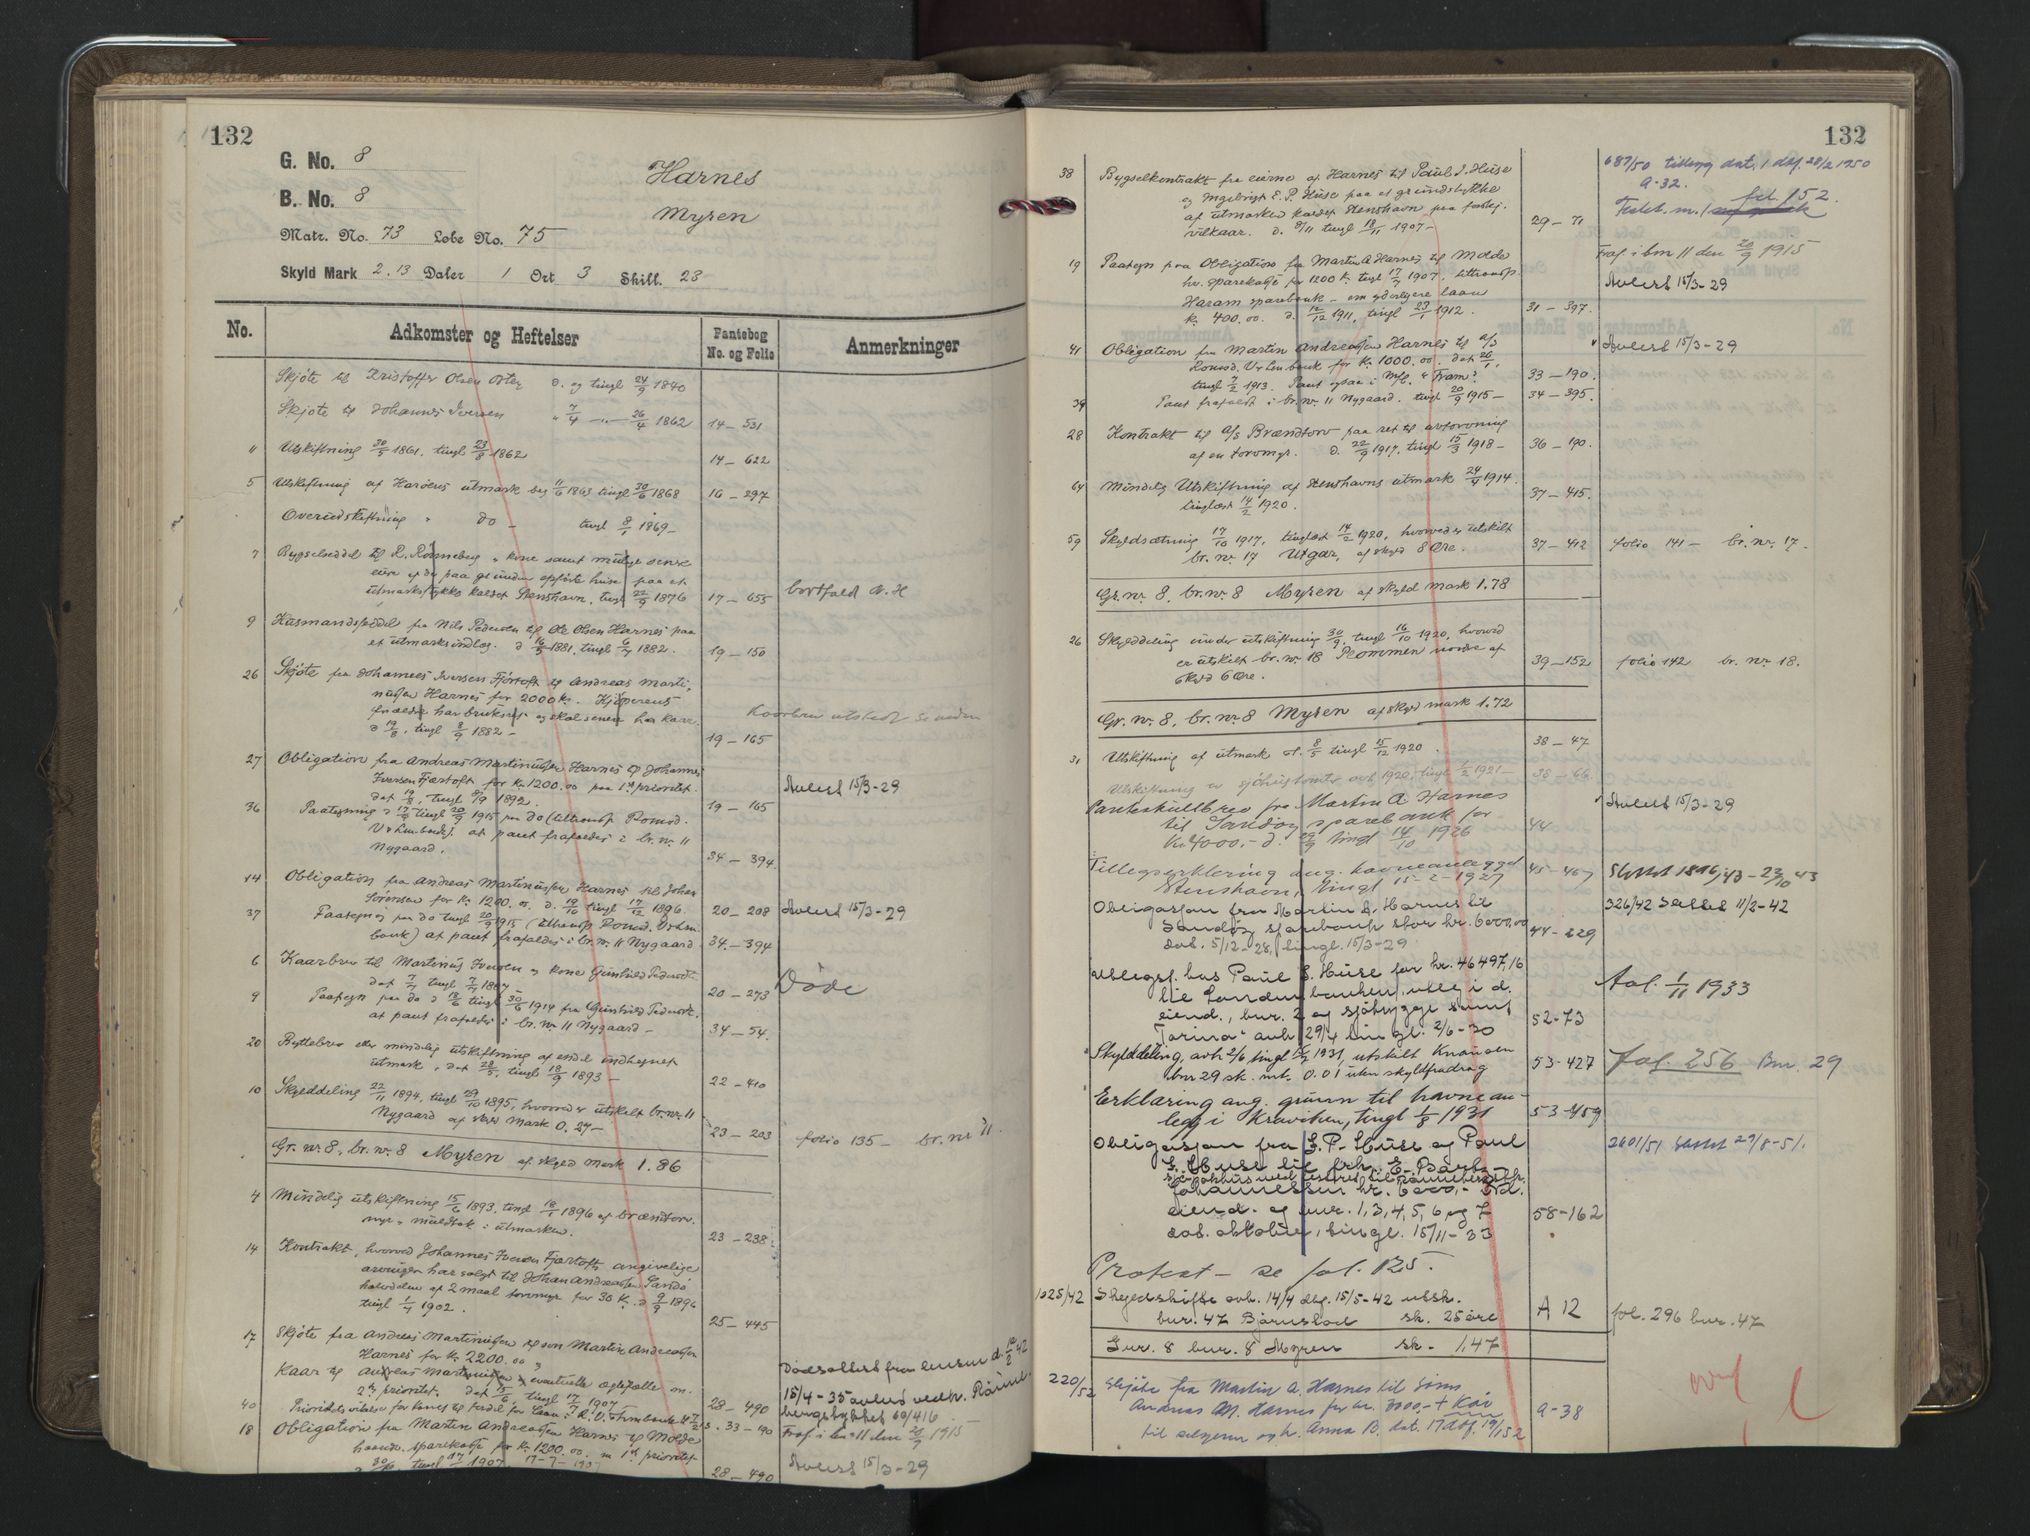 132
G. No. 8
B. No. 8
Harnes
Myren
Matr. No. 73 Løbe No. 75
Skyld Mark 2.13 Daler 1 Ort 3 Skill. 23
No. Adkomster og Heftelser Pantebog No. og Folio Anmerkninger
Skjöte til Kristoffer Olsen d. og tingl 24/9 1840
Skjöte til Johannes Iversen " 7/4 — " — 26/4 1862 14 – 531
11 Utskiftning 30/5 1861, tingl 23/8 1862 14 – 622
5 Utskiftning af Haröens utmark beg 11/6 1863 tingl 30/6 1868 16 – 297
Overudskiftning " do – tingl 8/1 1869 –
7 Bygselseddel til R. Rönneberg + kone samt mulige senere
eiere af de paa grunden opförte huse paa et
utmarksstykke kaldet Stenshavn, tingl 22/9 1876 17 – 655 bortfald N. H
9 Husmandsseddel fra Nils Pedersen til Ole Olsen Harnes paa
et utmarksindlag. d 16/5 1881, tingl 6/7 1882. 19 – 150
26 Skjöte fra Johannes Iversen Fjörtoft til Andreas Marti-
nussen Harnes for 2000 kr. Kjöperens
forældre har bruksret og skal senere ha kaar.
d 19/8, tingl 8/9 1882 – 19 – 165 Kaarbrev utstedt se neden
27 Obligation fra Andreas Martinussen Harnes til Johannes
Iversen Fjærtoft for kr. 1200.00 paa 1st prioritet.
dat 19/8, tingl 8/9 1892. 19 – 165 Avlest 15/3-29
36 Paategning d 17/9 tingl 20/9 1915 paa do (tiltransp Romsd.
V + Lm. bank). at pant frafaldes i br. nr. 11
Nygaard. 34 – 394
14 Obligation fra Andreas Martinussen Harnes til Johan
Sörensen for kr. 1200.00. d. 19/10 tingl 17/12 1896. 20 – 208 Avlest 15/3-29
37 Paategning paa do tingl 20/9 1915 (tiltransp Romsd. V + Lm.
bank) at pant frafaldes i br. nr. 11 Nygaard 34 – 394
6 Kaarbrev til Martinus Iversen og kone Gunhild Pedersdt.
dat 7/7 tingl 7/7 1887 20 – 273 Döde
9 Paategn paa do d 18/6 tingl 30/6 1914 fra Gunhild Pedersdt.
at pant frafaldes i br. nr 11 Nygaard – 34 – 54.
20 Byttebrev eller mindelig utskiftning af endel indhegnet
utmark, dat 28/5, tingl 18/9 1893 – 22 – 410
10 Skylddeling 22/11 1894, tingl 29/10 1895, hvorved er utskilt br. nr. 11
Nygaard af skyld Mark 0.27 – 23 – 203 folio 135 – br. nr 11.
Gr. nr. 8, br. nr. 8 Myren af skyld mark 1.86
4 Mindelig utskiftning 15/6 1893, tingl 18/1 1896 af brændtorv.
myr + muldtak i utmarken. 23 – 238
14 Kontrakt, hvorved Johannes Iversen Fjærtofts angivelige
arvinger har solgt til Johan Andreassen Sandö
halvdelen af 2 maal torvmyr for 30 kr. d 9/9 1896
tingl 1/7 1902. 25 – 445
17 Skjöte fra Andreas Martinussen til sön Martin Andreassen
Harnes for kr. 2200.00 og
Kaar til Andreas Martinussen + eventuelle ægtefælle m.
2den prioritet. dat 15/6, tingl 17/7 1907 28 – 490
15/4 – 35 avlest vedk.
40 33 – 190
18 Obligation fra Martin Andreassen Harnes til Molde
haandv. sparekasse for kr. 1200.00. m 1st prioritet 28 – 490
Fraf. i bnr 11 den 20/9 1915
Avlest 15/3-29
132
38 Bygselkontrakt fra eierne af Harnes til Paul I. Huse
og Ingebrigt E. P. Huse paa et grundstykke
af utmarken kaldet Stenshavn paa forskj.
vilkaar. d. 9/11 tingl 18/11 1907 – 29 – 71
687/50 tillegg dat. 1 dbf. 28/2 1950
A-32.
fol 152.
19 Paategn paa Obligation fra Martin A Harnes til Molde
hv. sparekasse for 1200 kr. tingl 17/7 1907, tiltransp.
Haram sparebank – om yderligere laan
kr. 400.00. d. 12/12 1911, tingl 23/1 1912. 31 – 397.
Fraf i bnr 11 den 20/9 1915
Avlest 15/3-29
41 Obligation fra Martin Andreassen Harnes til A/S
Romsd. V + Lm. bank for kr. 1000.00. dat 26/1,
tingl 7/2 1913. Pant ogsaa i M/f. "Fram". 33 – 190.
Avlest 15/3-29
39 Pant frafaldt i br. nr. 11 Nygaard. tingl 20/9 1915 – 34 – 395.
28 Kontrakt til A/S Brændtorv paa ret til avtorvning
af en torvmyr. d. 22/9 1917, tingl 15/3 1918 – 36 – 190.
64 Mindelig Utskiftning af Stenshavns utmark 24/4 1914.
tinglæst 14/2 1920. 37 – 415.
59 Skyldsætning 17/10 1917, tinglæst 14/2 1920, hvorved er utskilt
br. nr. 17 Utgar, af skyld 8 Øre. 37 – 412 folio 141 – br. nr. 17.
Gr. nr. 8, br. nr. 8 Myren af skyld mark 1.78
26 Skylddeling under utskiftning 30/9, tingl 16/10 1920, hvorved
er utskilt br. nr. 18 Plommen nordre af
skyld 6 Øre. 39 – 152 folio 142 br. nr. 18.
Gr. nr. 8, br. nr. 8 Myren af skyld mark 1.72
31 Utskiftning af utmark d. 8/5 tingl 15/12 1920. 38 – 47
Utskiftning av sjöhustomter avh 1920, tingl 1/2 1921 – 38 – 66.
Panteskuldbrev fra Martin A Harnes
til Sandöy sparebank for
kr. 4000.- d. 29/9 tingl 14/10 1926 44
Avlest 15/3-29
Tillegserklering ang. havneanlegget
Stenshavn, tingl 15-2-1927 45-467 Slettet 1816/43 – 23/10 43
Obligasjon fra Martin A. Harnes til
Sandöy sparebank stor kr. 6000,00
dat. 5/12-28, tingl. 15/3-29 47-229 326/42 Slettet 11/2-42
Utlegsf. hos Paul I. Huse for kr. 46497,16
til Landmandsbanken, utleg i d.
eiend., bnr. 2 og sjöbrygge samt
"Torina" avh 29/4 tingl. 2/6-30 52-73 Avl. 1/11 1933
Skylddeling, avh 2/6 tingl 1931, utskilt Knausen
bnr 29 sk. mk. 0.01 uten skyldfradrag 53-427 fol. 256 Bnr. 29
Erklæring ang. grunn til havnean-
legg i Kraviken, tingl 1/8 1931 53-459
Obligasjon fra I. P. Huse og Paul
I. Huse til frk. E.
Johannessen kr. 6000,-
eiend. og bnr. 1, 3, 4, 5, 6 og 7
dat. oktober, tingl. 15/11-33 58-162
2601/51 Slettet 29/8-51.
Protest – se fol. 125.
1025/42 Skyldskifte avh. 14/4 dbf. 15/5-42 utsk.
bnr. 47 Björnstad sk. 25 öre A 12 fol. 296 bnr. 47
Gnr. 8 bnr. 8 Myren sk – 1,47
220/52 Skjöte fra Martin A. Harnes til sönn
Andreas M. Harnes for kr. 3000,- + Kår
til selgeren og h. Anna B. dat. 17 dbf. 19/1 52 A-38